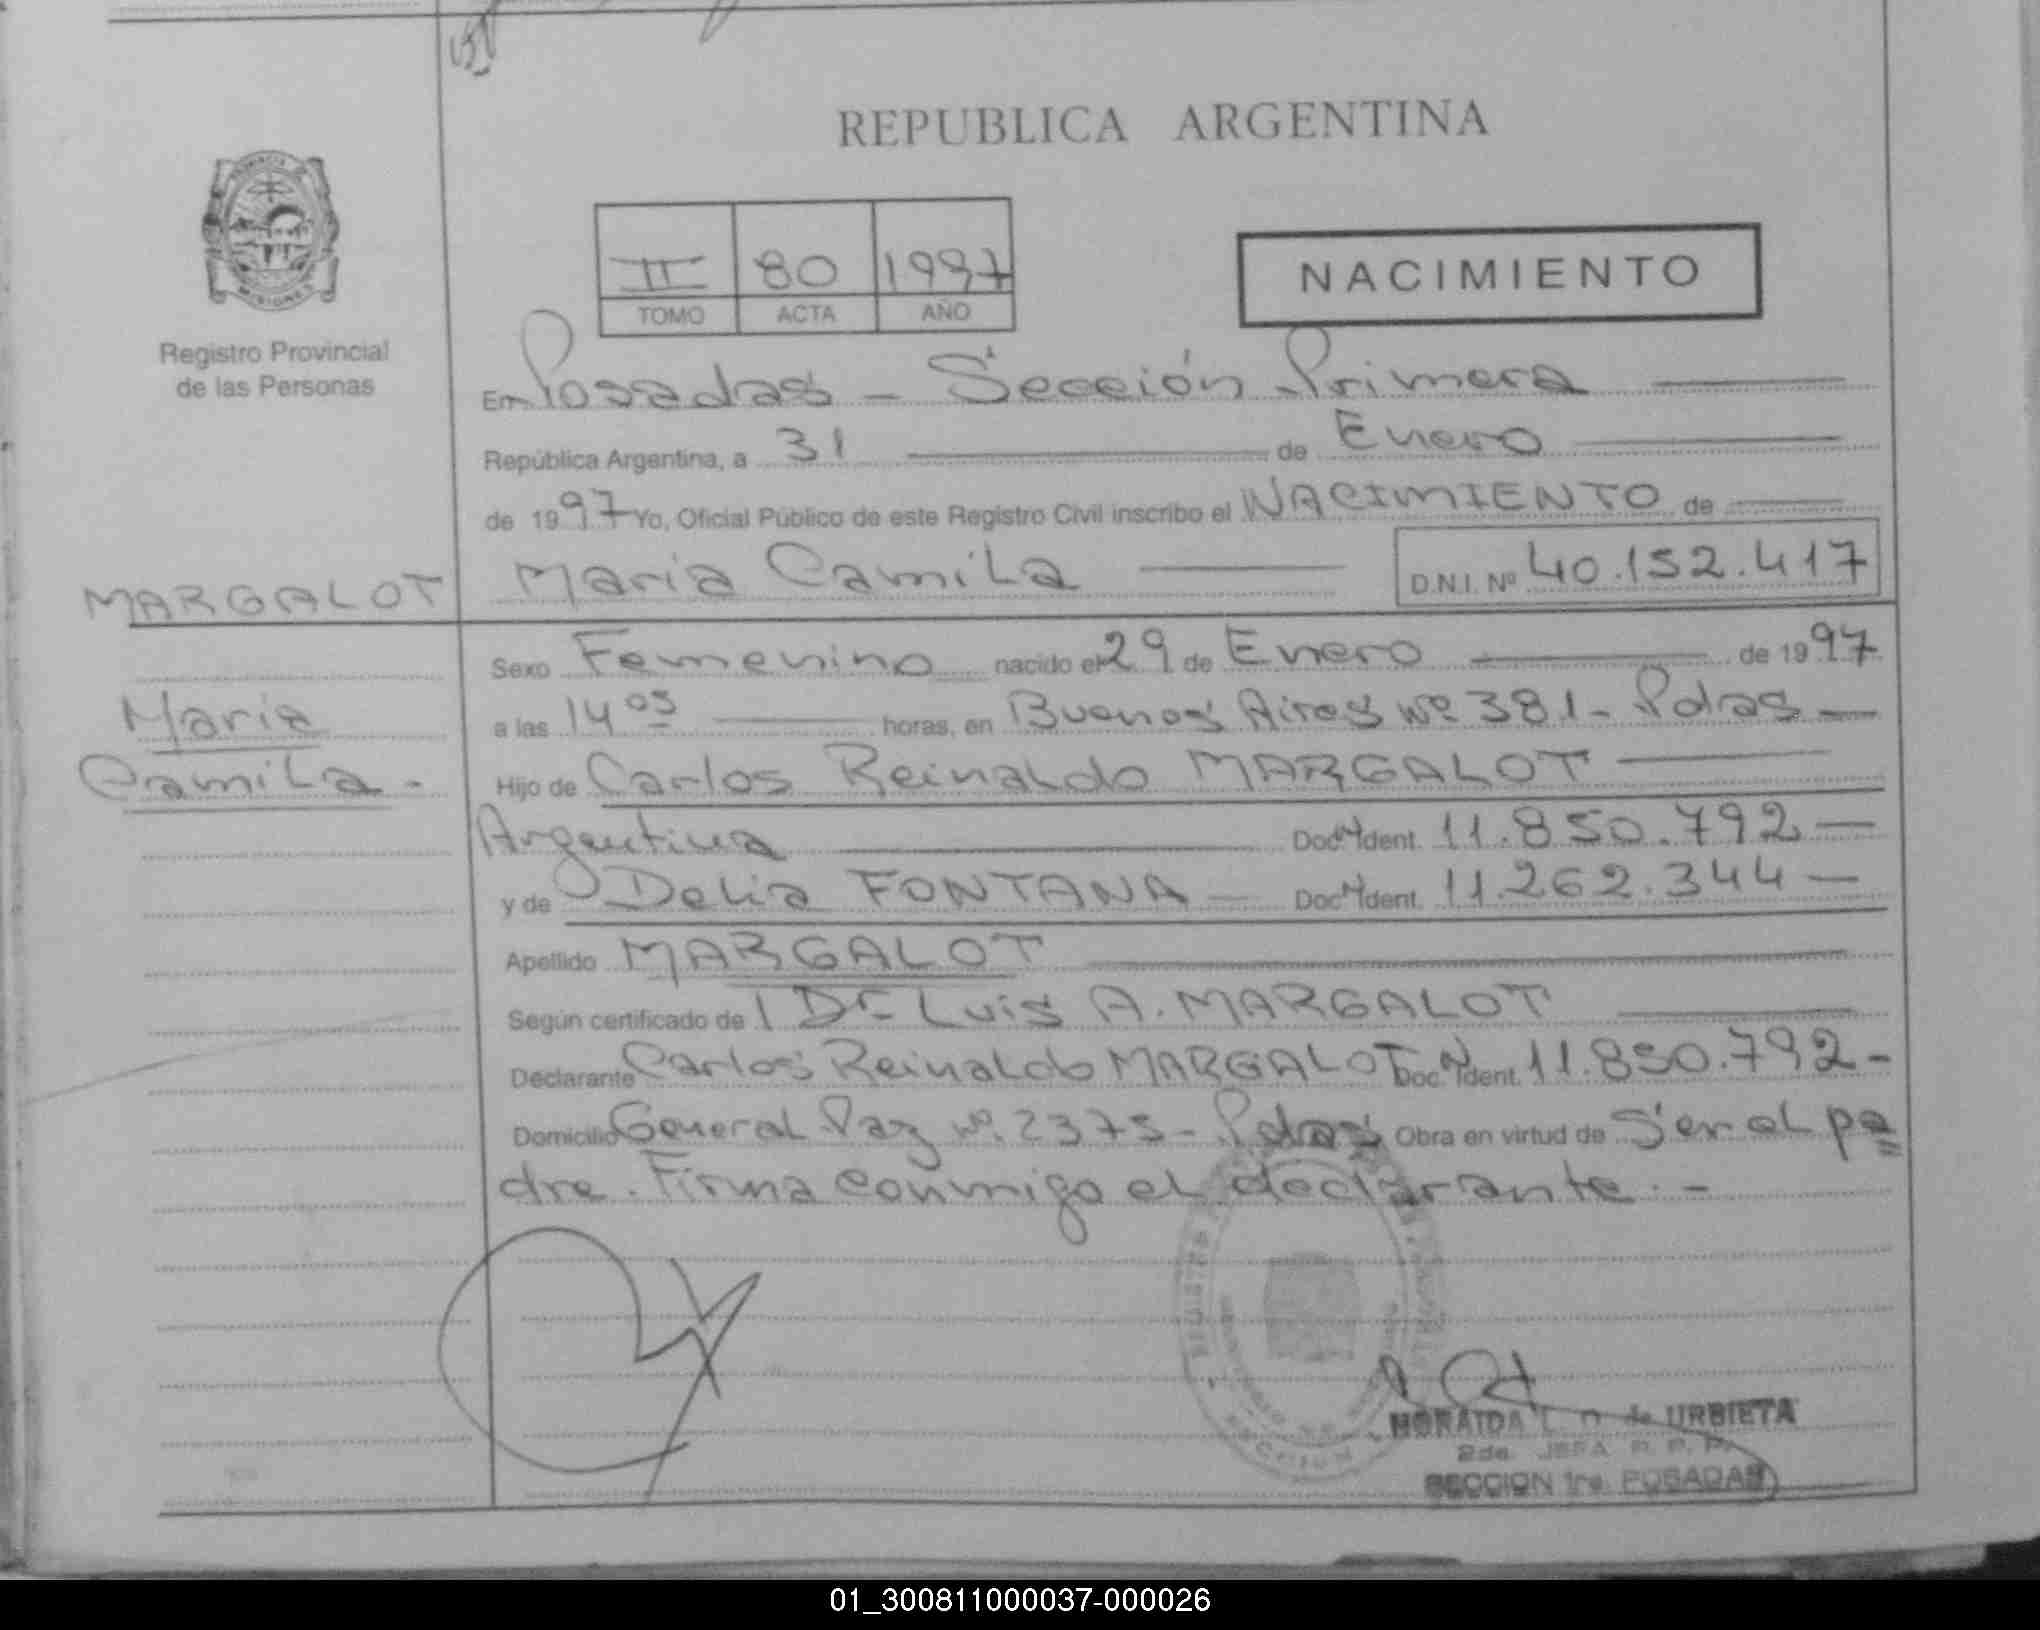 REPUBLICA ARGENTINA
PROVINCIA
MISIONES
Registro Provincial
de las Personas
II 80 1997
TOMO ACTA AÑO
NACIMIENTO
En Posadas - Sección Primera
República Argentina, a 31 de Enero
de 1997 Yo, Oficial Público de este Registro Civil inscribo el NACIMIENTO de
MARGALOT
María Camila D.N.I. Nº 40.152.417
Sexo Femenino nacido el 29 de Enero de 1997
María
Camila.-
a las 14 05 horas, en Buenos Aires Nº 381- Pdas
Hijo de Carlos Reinaldo MARGALOT
Argentina Doc. Ident. 11.850.792
y de Delia FONTANA Doc. Ident. 11.262.344
Apellido MARGALOT
Según certificado de Dr Luis A. MARGALOT
Declarante Carlos Reinaldo MARGALOT Doc. Ident. 11.850.792-
Domicilio General Paz Nº 2375- Pdas Obra en virtud de Ser el pa
dre. Firma conmigo el declarante.-
de URBIETA
2da. JEFA R. P. P.
SECCION 1ra. POSADAS
01_300811000037-000026